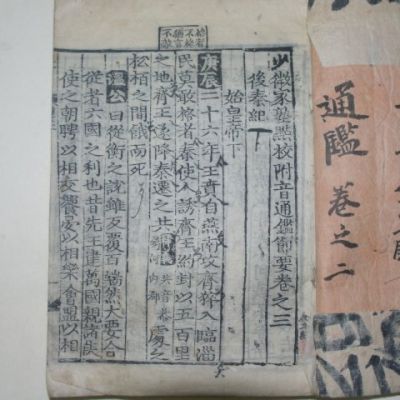 少微家塾點校附音通鑑節要卷之三
後秦紀
始皇帝下
庚辰二十六年王賁自燕南攻齊猝入臨淄
民莫敢格者秦使人誘齊王約封以五百里
之地齊王遂降秦遷之共共音恭河內郡處之
松柏之間餓而死
溫公曰從衡之說雖反覆百端然大要合
從者六國之利也昔先王建萬國親諸侯
使之朝聘以相交饗宴以相樂會盟以相
通鑑 卷之二